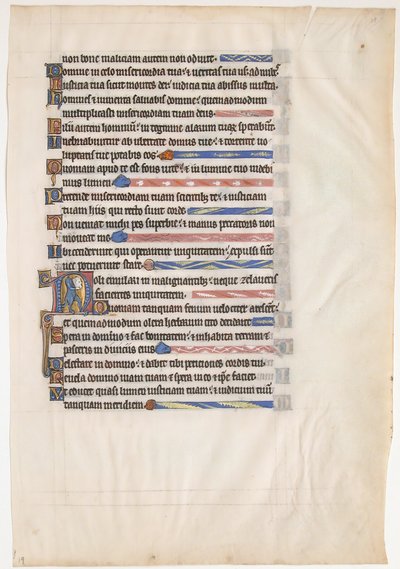 non bona maliciam autem non odivit.
Domine in celo misericordia tua: et veritas tua usq; ad nubes.
Iusticia tua sicut montes dei: iudicia tua abissus multa.
Homines et iumenta salvabis domine: quemadmodum
multiplicasti misericordiam tuam deus.
Filii autem hominum: in tegmine alarum tuarum sperabunt.
Inebriabuntur ab ubertate domus tue: et torrente vo
luptatis tue potabis eos.
Quoniam apud te est fons vite: et in lumine tuo videbi
mus lumen.
Pretende misericordiam tuam scientibz te: et iusticiam
tuam hiis qui recto sunt corde.
Non veniat michi pes superbie: et manus peccatoris non
moveat me.
Ibi ceciderunt qui operantur iniquitatem: expulsi sunt
nec potuerunt stare.
Noli emulari in malignantibz: neque zelaveris
facientes iniquitatem.
Quoniam tanquam fenum velociter arescent:
et quemadmodum olera herbarum cito decident.
Spera in domino et fac bonitatem: et inhabita terram et
pasceris in diviciis eius.
Delectare in domino: et dabit tibi peticiones cordis tui.
Revela domino viam tuam et spera in eo et ipse faciet.
Et educet quasi lumen iusticiam tuam: et iudicium tuum
tanquam meridiem.
19